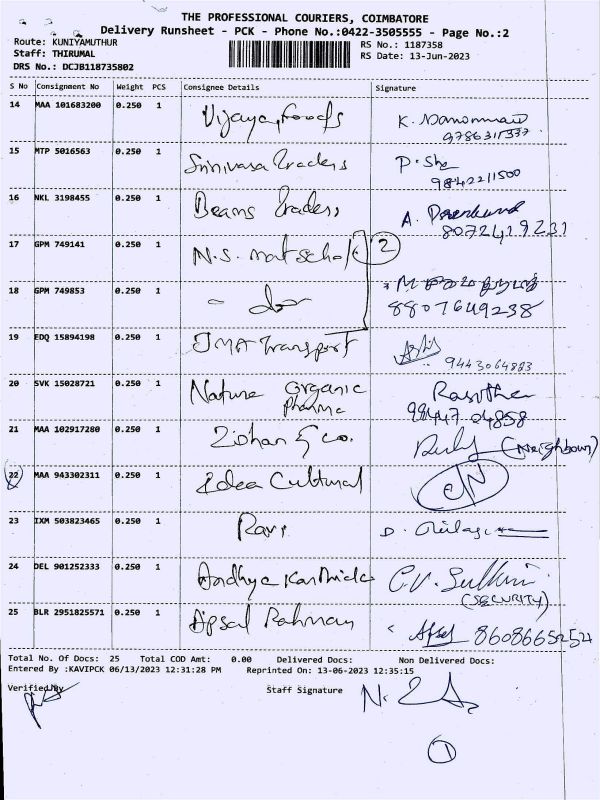 THE PROFESSIONAL COURIERS, COIMBATORE
Delivery Runsheet - PCK - Phone No.:0422-3505555 - Page No.:2
Route: KUNIYAMUTHUR
Staff: THIRUMAL
DRS No.: DCJB118735802
RS No.: 1187358
RS Date: 13-Jun-2023
S No Consignment No Weight PCS Consignee Details Signature
14 MAA 101683200 0.250 1 Vijaya Foods K.
9786311337
15 MTP 5016563 0.250 1 Srinivasa Traders P.
9842211500
16 NKL 3198455 0.250 1 Beams Traders A.
8072419231
17 GPM 749141 0.250 1 N.S. mat school 2
18 GPM 749853 0.250 1 - do -
8807649238
19 EDQ 15894198 0.250 1 JMA Transport
9443064883
20 SVK 15028721 0.250 1 Nature organic
Pharma
99447 04858
21 MAA 102917280 0.250 1 Zohan & co. (Neighbour)
22 MAA 943302311 0.250 1 Idea Cultural
23 IXM 503823465 0.250 1 Ravi D.
24 DEL 901252333 0.250 1 Andhya Karthick C.V.
(SECURITY)
25 BLR 2951825571 0.250 1 Apsal Rahman 8608665254
Total No. Of Docs: 25 Total COD Amt: 0.00 Delivered Docs: Non Delivered Docs:
Entered By :KAVIPCK 06/13/2023 12:31:28 PM Reprinted On: 13-06-2023 12:35:15
Verified By Staff Signature
1